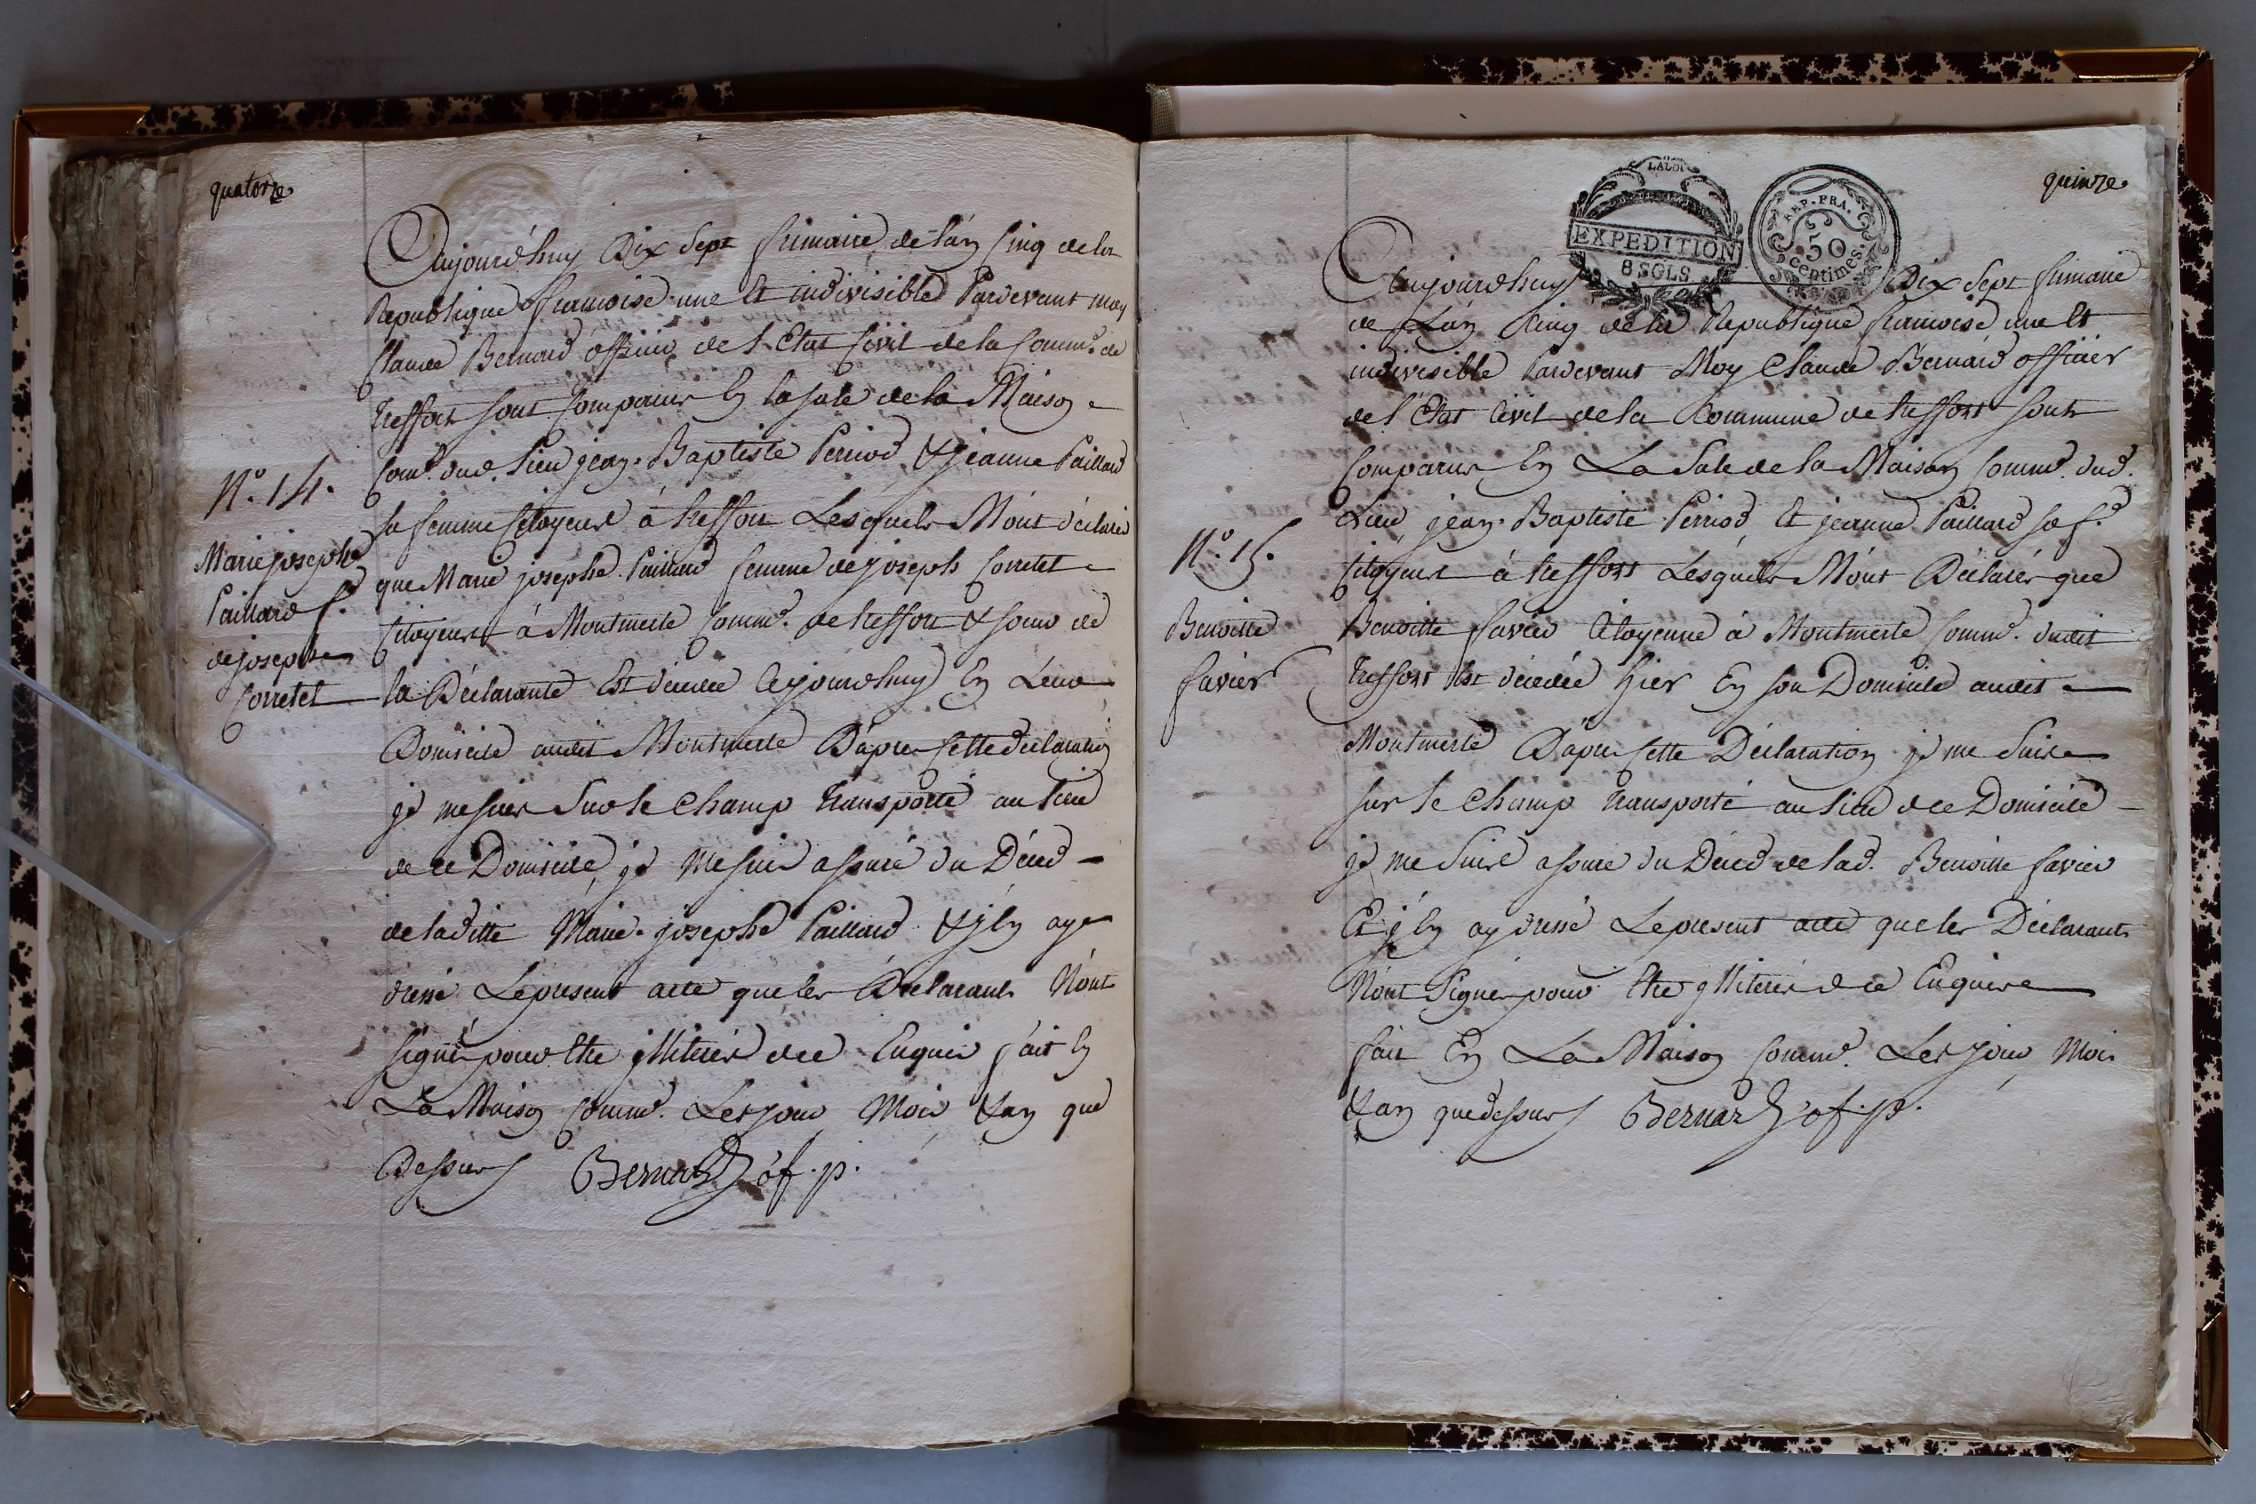 quatorze
Aujourd'huy Dix Sept frimaire de l'an Cinq de la
Republique francoise une et indivisible Pardevant moy
Claude Bernard officier de l'Etat Civil de la Comm.e de
treffort sont Comparus En la sale de la Maison
Com.e dud. Lieu jean-Baptiste Perriod & jeanne Paillard
sa femme Citoyens à treffort Lesquels M'ont déclaré
que Marie josephe Paillard femme de joseph Corretet
Citoyens à Montmerle Comm.e de treffort & soeur de
la Déclarante Est décédée Cejourdhuy En Leur
Domicile audit Montmerle D'apres Cette déclaration
je me suis Sur le Champ transporté au lieu
de ce Domicile, je me suis assuré du Décéd
de laditte Marie-josephe Paillard & j'En ay
dressé Le present acte que les Déclarants N'ont
signé pour être illiterés de ce Enquis fait En
La Maison Comm.e Les jour Mois & an que
Dessus Bernard of. p.
N.o 14.
Marie josephe
Paillard f.e
de joseph
Corretet
quinze
EXPEDITION
8 SOLS
REP. FRA.
50
centimes.
Aujourdhuy Dix Sept frimaire
de L'an Cinq de la Republique francoise une et
indivisible Pardevant Moy Claude Bernard officier
de l'Etat Civil de la Commune de treffort sont
Comparus En La Sale de la Maison Comm.e dud.
Lieu jean-Baptiste Perriod et jeanne Paillard sa f.e
Citoyens à treffort Lesquels M'ont Déclarés que
Benoitte favier Citoyenne à Montmerle Comm.e dudit
treffort Est décédée hier En son Domicile audit
Montmerle D'apres Cette Déclaration je me Suis
sur le Champ transporté au lieu de ce Domicile
je me Suis assuré du Décéd de lad. Benoitte favier
Et j'En ay dressé Le present acte que les Déclarants
N'ont Signé pour être illiterés de ce Enquis
fait En La Maison Comm.e Les jour Mois
& an que dessus Bernard of. p.
N.o 15.
Benoitte
favier